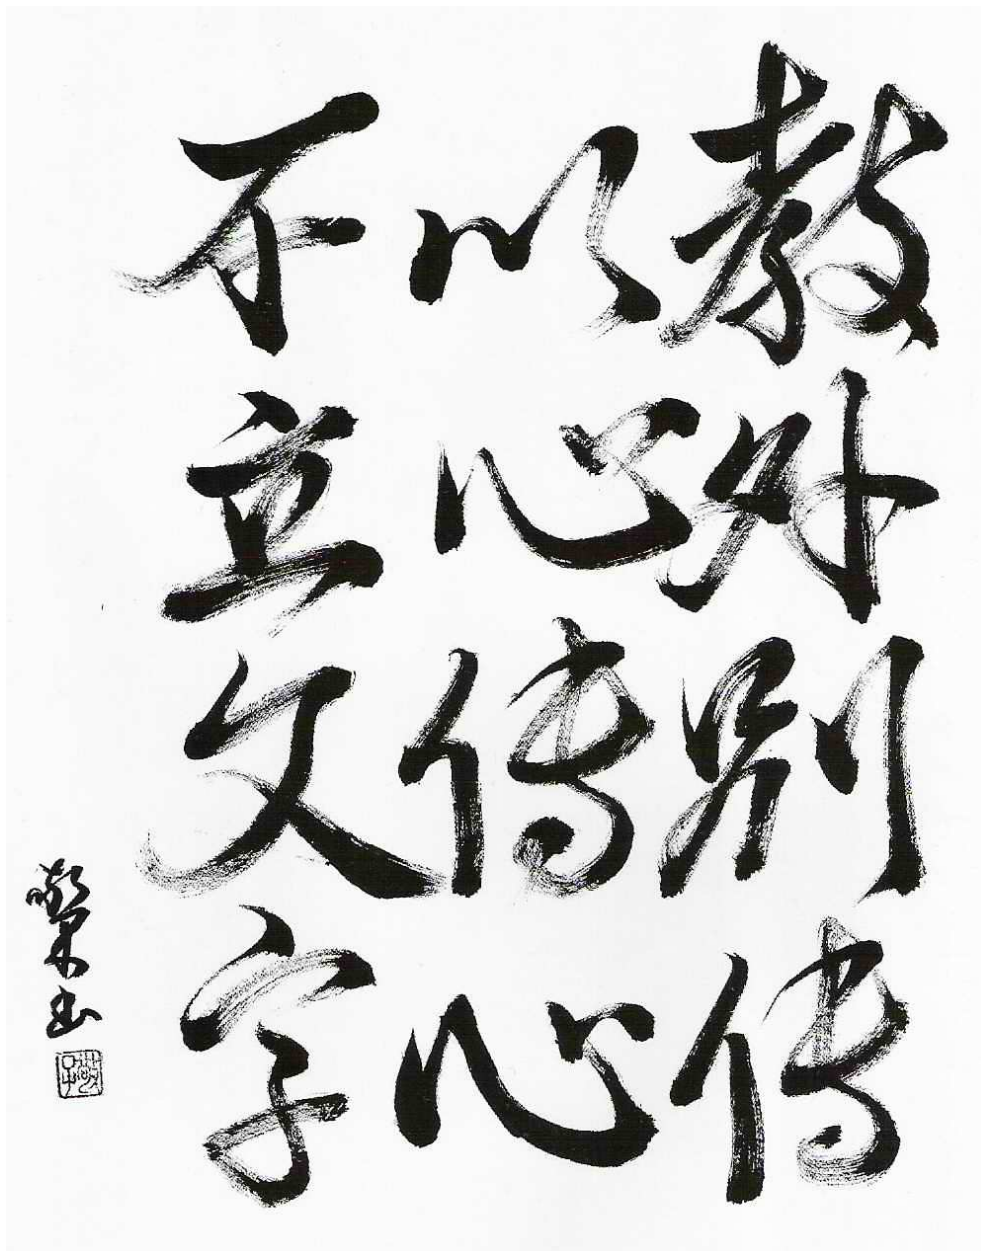 教外别傳
以心傳心
不立文字